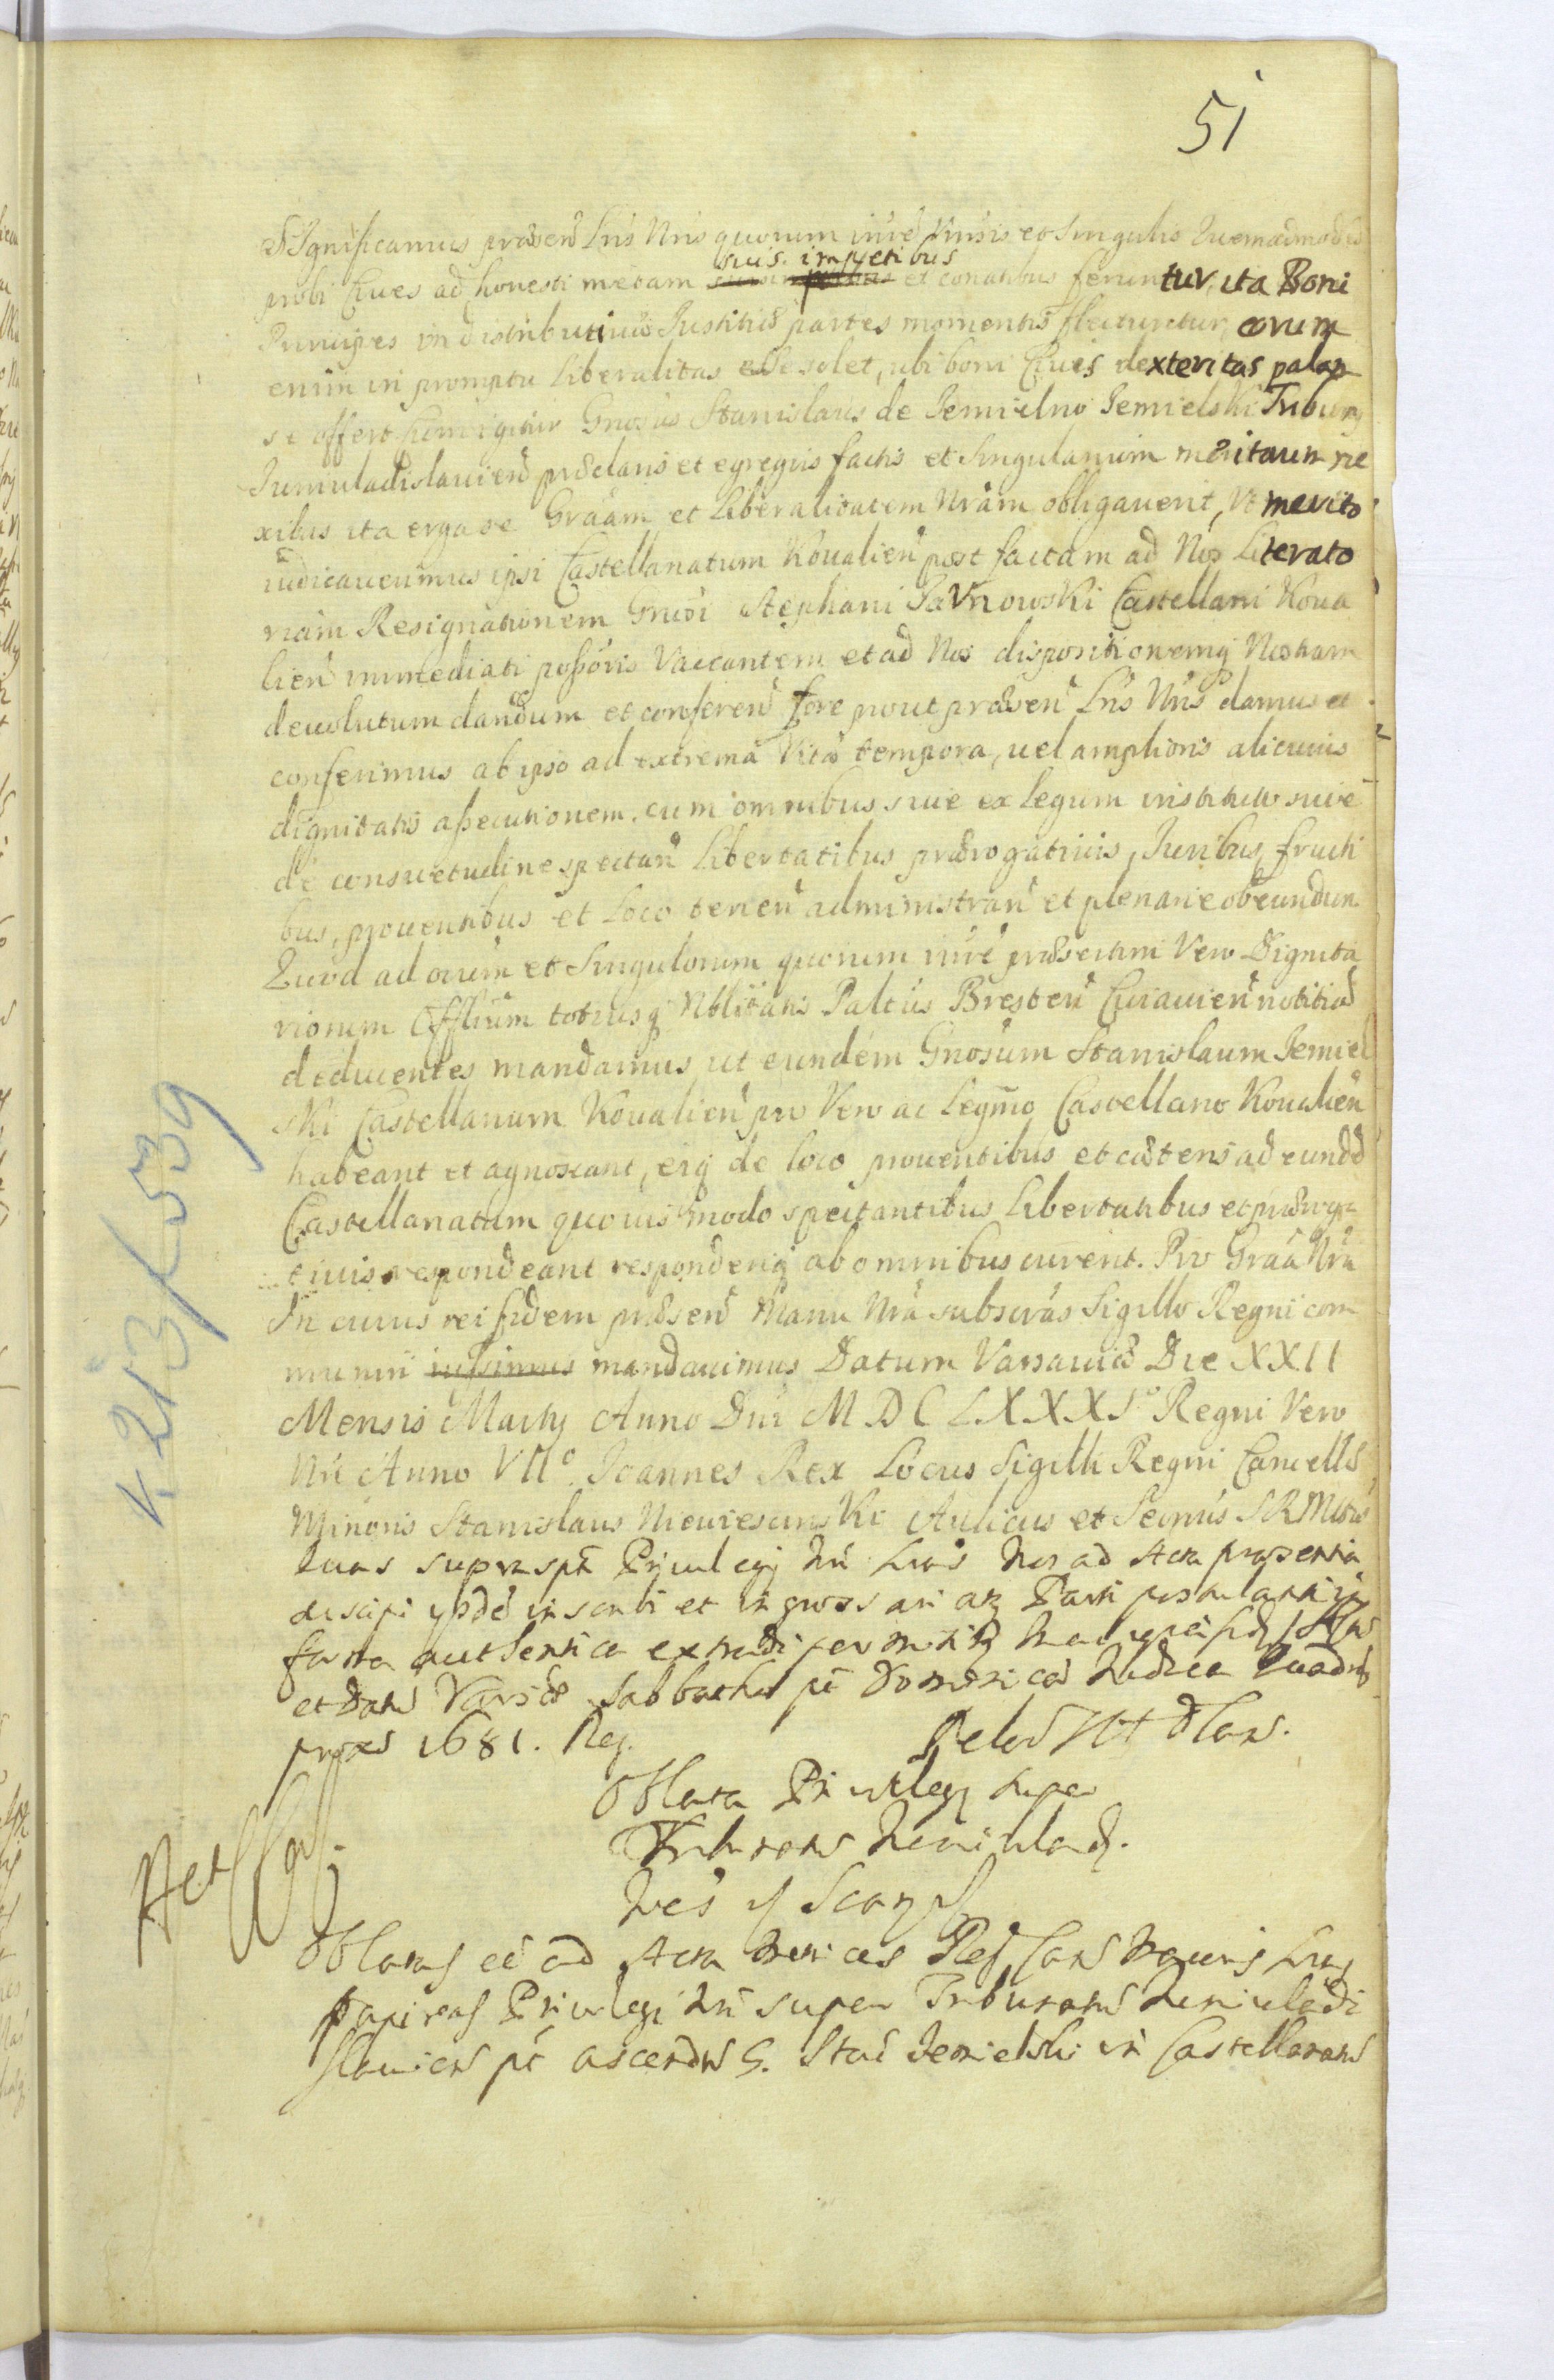 51
SIgnificamus præsen Lris Nris quorum interē Vnisis et Singulis Quemadmodū
probi Ciues ad honesti metam suis impetibus et conatibus feruntur, ita Boni
Principes in distributiuæ Justitiæ partes momentis flectuntur, eorum
enim in promptu liberalitas esse solet, ubi boni Ciuis dexteritas palam
se offert hinc igitur Gnosus Stanislaus de Jemielno Jemielski Tribun
Juniuladislauien præclaris et egregiis factis et Singularium meritorum ne
xibus ita erga se Graām et liberalitatem Nrām obligauerit, Vt merito
iudicauerimus ipsi Castellanatum Koualien post factam ad Nos Literato
riam Resignationem Gnosi Stephani Sarnowski Castellani Koua
lien immediati possoris Vaccantem et ad Nos dispositionemq Nostram
deuolutum dandum et conferen fore prout præsen Lris Nris damus et
conferimus ab ipso ad extrema Vitæ tempora, uel amplioris alicuius
dignitatis assecutionem. cum omnibus siue ex legum instituto siue
de consuetudine spectan libertatibus prærogatiuis, Juribus, fructi
bus, prouentibus et Loco tenen administran et plenarie obeundum
Quod ad omm et Singulorum quorum intē præsertim Vero Dignita
riorum Offlium totiusq Nblitatis Paltus Bresten Cuiauien notitiā
deducentes mandamus, ut eundem Gnosum Stanislaum Jemiel
ski Castellanum Koualien pro Vero ac Legmo Castellano Koualien
habeant et agnoscant, eiq de loco prouentibus et cæteris ad eundd
Castellanatum quouis modo spectantibus Libertatibus et præroga
tiuis respondeant responderiq ab omnibus curent. Pro Graā Nrā
In cuius rei fidem præsen Manu Nra subscrās Sigillo Regni com
muniri iussimus mandauimus Datum Varsauiæ Die XXII
Mensis Martij Anno Dni MDCLXXXIº Regni Vero
Nri Anno VIIº. Joannes Rex Locus Sigilli Regni Cancellæ
Minoris Stanislaus Niewiescinski Aulicus et Secrius SRMttis
Quas suprasptā Priuilegij Nri Lras Nos ad Acta præsentia
suscipi ibde inscribi et ingrossari atq Parti postulanti
factā authentice extradi permisimus
et Dans Varsæ Sabbatho pt Dominicā Judica Quadr
prox 1681. Reg.
Oblata Priuilegij super
Tribunatū Juniulad.
Act
Oblatas ee ad Acta Metrices Reg Canc Maioris Lras
papireas Priuilegij Nri super Tribunatū Juniuladi
slauien pt ascensū G. Stai Jemielski in Castellanatū
K 213/539